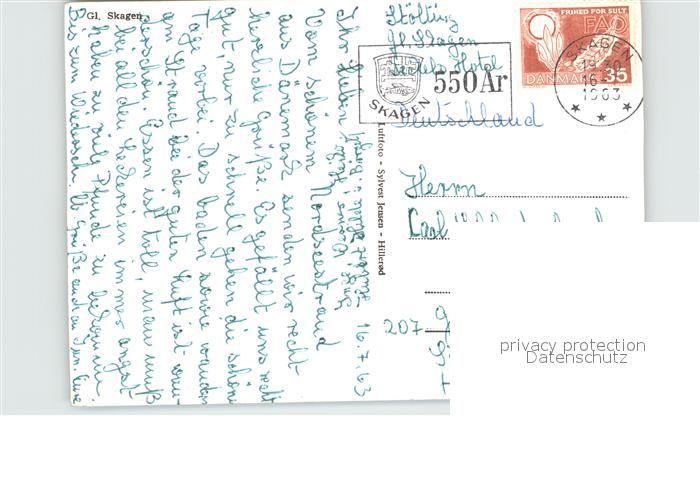 Gl. Skagen
Stölting
Gl. Skagen
Hotel
Deutschland
550 År
SKAGEN
FRIHED FOR SULT
FAO
DANMARK
35
SKAGEN
16
1963
Luftfoto - Sylvest Jensen - Hillerød
Herrn
Carl
207
16.7.63
Ihr Lieben
Vom schönen Nordseestrand
aus Dänemark senden wir recht
herzliche Grüße. Es gefällt uns recht
gut, nur zu schnell gehen die schönen
Tage vorbei. Das baden sowie wandern
am Strand bei der guten Luft ist wun-
derschön. Essen ist toll, man muß
bei all den Leckereien immer angst
haben zu viele Pfunde zu
Bis zum Wiederseh. lb. Grüße auch an
privacy protection
Datenschutz